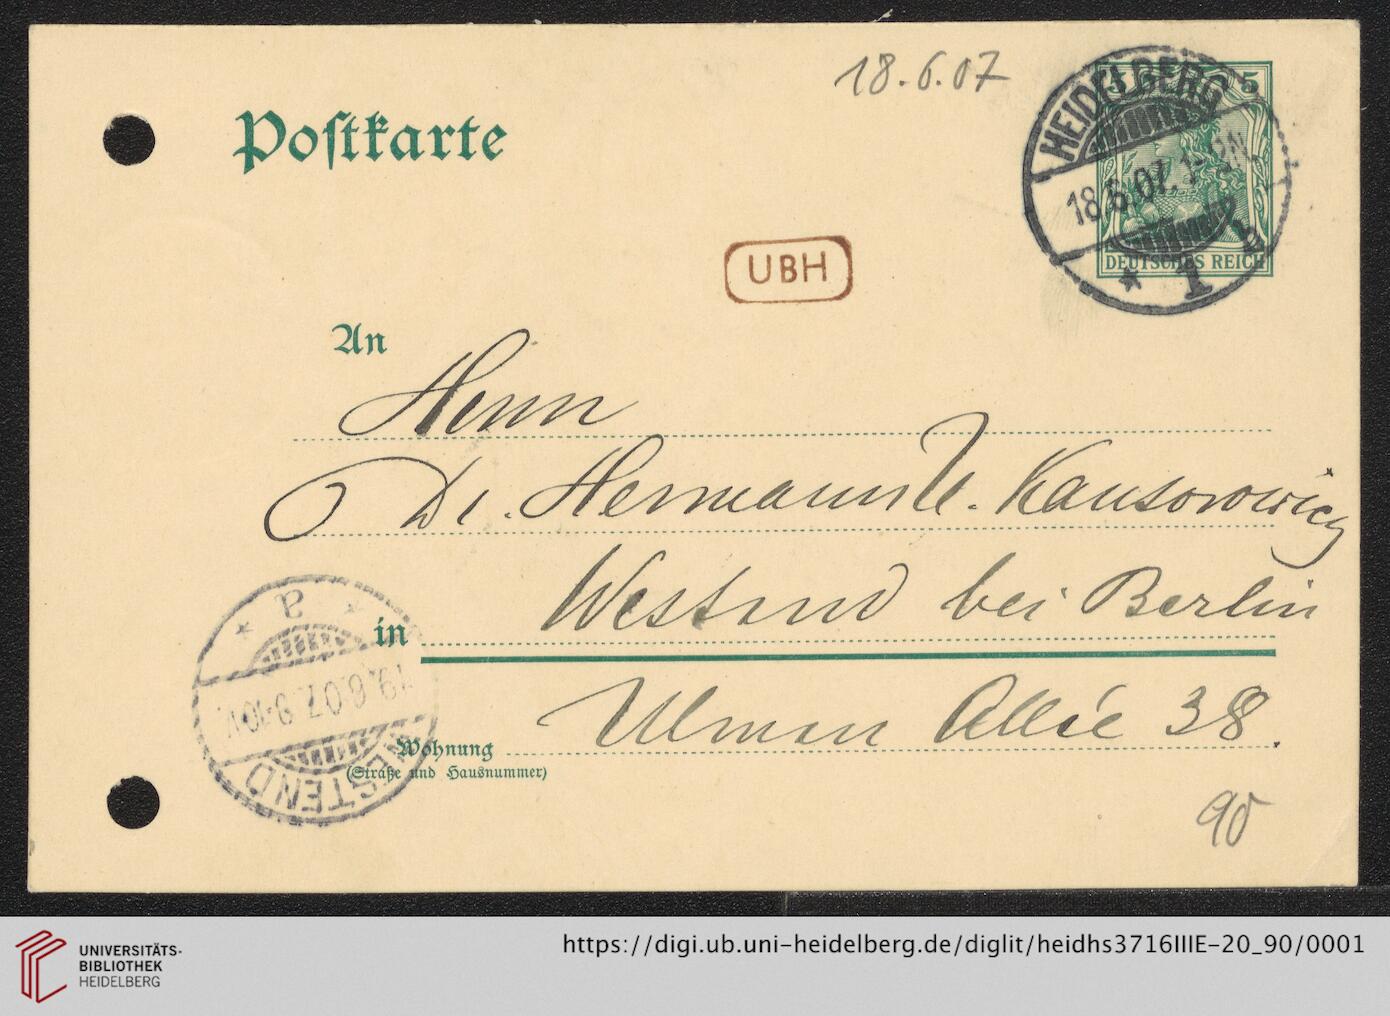 18.6.07
Postkarte
5
HEIDELBERG
18.6.07.1-2N.
* 1 b
DEUTSCHES REICH
UBH
An
Herrn
Dr. Hermann U. Kantorowicz
Westend bei Berlin
in
Ulmen Allée 38.
Wohnung
(Straße und Hausnummer)
* a *
19.6.07. 9-10V.
WESTEND
90
UNIVERSITÄTS-
BIBLIOTHEK
HEIDELBERG
https://digi.ub.uni-heidelberg.de/diglit/heidhs3716IIIE-20_90/0001